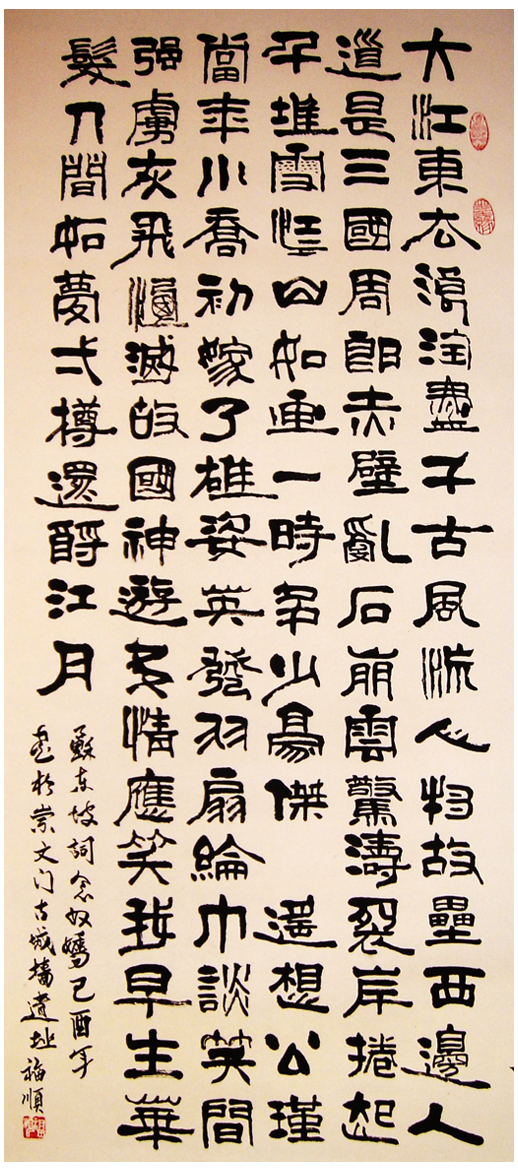 大江東去浪淘盡千古風流人物故壘西邊人
道是三國周郎赤壁亂石崩雲驚濤裂岸捲起
千堆雪江山如畫一時多少豪傑 遥想公瑾
當年小喬初嫁了雄姿英發羽扇綸巾談笑間
强虜灰飛煙滅故國神遊多情應笑我早生華
髮人間如夢弌樽還酹江月
蘇东坡詞念奴嬌己酉年
書於崇文门古城墻遺址 福順